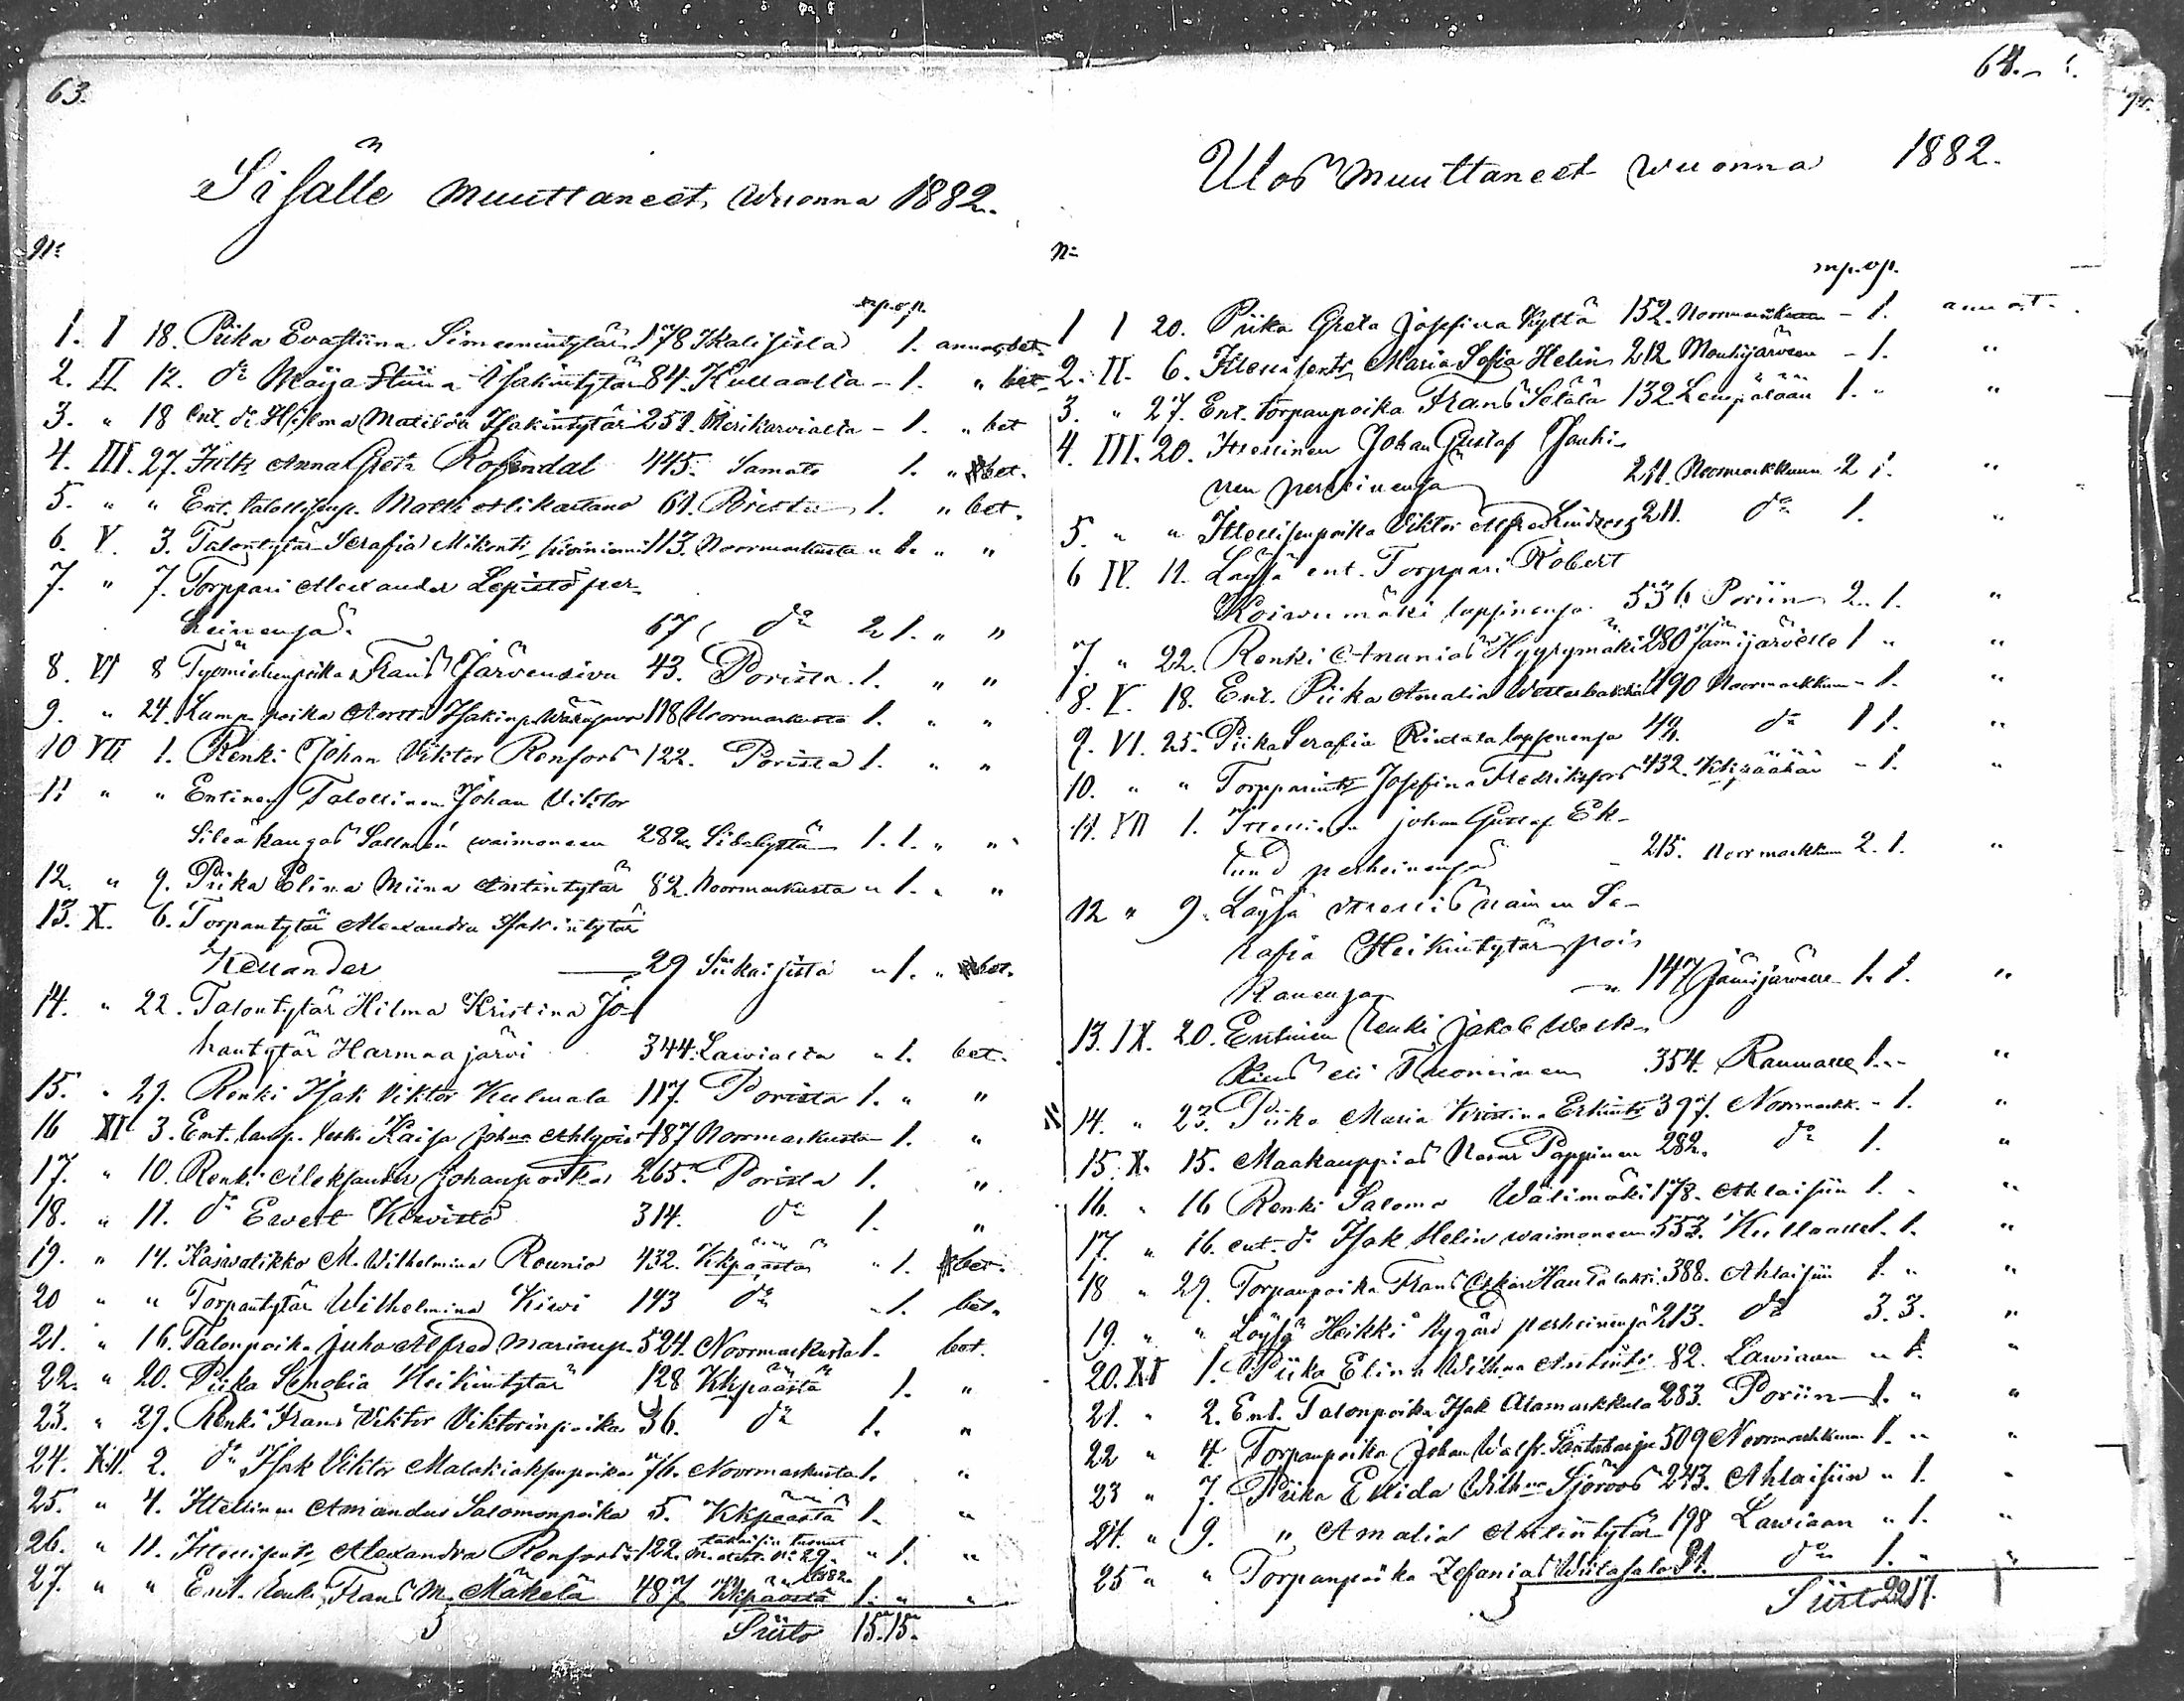 63.
Sisälle muuttaneet wuonna 1882.
No
mp. vp.
1. I 18. Piika Eva Stiina Simeonintytär 178 Ikalisista 1. annet bet.
2. II 12. do Maija Stiina Isakintytär 84. Kullaalta - 1. " bet
3. " 18 ent. do Hilma Matilda Isakintytär 251. Merikarvialta - 1. " bet
4. III. 27. Anna Greta Rosendal 445. Samate 1. " bet.
5. " " Ent. talollisenp. Matti Alikartano 61. Porista 1. " bet.
6. V. 3. Talontytär Serafia Mikonts Kiviniemi 113. Noormarkusta " 1. " "
7. " 7. Torppari Alexander Lepistö per-
heinensä 67. do 2 1. " "
8. VI 8 Työmiehenpoika Frans Järvensivu 43. Porista 1. " "
9. " 24. Lamp. poika Isakinp. 118 Noormarkusta 1. " "
10 VII 1. Renki Johan Viktor Renfors 122. Porista 1. " "
11 " " Entinen Talollinen Johan Viktor
Sileäkangas Sallmén waimoneen 282. 1. 1. " "
12. " 9. Piika Elina Miina Antintytär 82. Noormarkusta " 1. " "
13. X. 6. Torpantytär Alexandra Isakintytär
Kellander 29 Siikaisista " 1. " bet.
14. " 22. Talontytär Hilma Kristina Jo-
hantytär Harmaajärvi 344. Lawialta " 1. bet.
15. " 29. Renki Isak Viktor Kulmala 117. Porista 1. " "
16 XI 3. Ent. lamp. leski Kaisa Johna Ahlqvist 187 Noormarkusta 1. "
17. " 10. Renki Aleksander Johanpoika 265. Porista 1. "
18. " 11. do Ewert Koivisto 314. do 1. "
19. " 14. Kaswatikko M. Wilhelmina Rounio 432. Kkpäästä " 1. bet.
20 " " Torpantytär Wilhelmina Kiwi 143 do " 1. bet.
21. " 16. Talonpoika Juho Alfred Marianp. 524. Noormarkusta 1. bet.
22. " 20. Piika Senobia Heikintytär 128 Kkpäästä 1. "
23. " 29. Renki Frans Viktor Viktorinpoika 36. do 1. "
24. XII. 2. do Isak Viktor Malakiaksenpoika 76. Noormarkusta 1. "
25. " 4. Itsellinen Amandus Salomonpoika 5. Kkpäästä 1. "
26. " 11. Itsellisents Alexandra Renfors 122. takaisin tuonut m. att. No 29. 1882. " 1. "
27. " " Ent. Renki Frans M. Mäkelä 487 Kkpäästä 1. " "
Siirto 15. 15.
64.
Ulos muuttaneet wuonna 1882.
No
mp. vp.
1 I 20. Piika Greta Josefina Kyttä 152. Noormarkkuun - 1. annet.
2. II. 6. Itsellisents Maria Sofia Helin 212 Mouhijärveen - 1. "
3. " 27. Ent. torpanpoika Frans Sälätä 132 Lempäälään 1. " "
4. III. 20. Itsellinen Johan Gustaf
nen perheinensä 211 Noormarkkuun 2 1. "
5. " " Itsellisenpoika Viktor Alfred Lindroos 211. do 1. "
6 IV. 11. Läysä ent. Torppari Robert
Koiwumäki lapsinensa 536 Poriin 2. 1. "
7. " 22. Renki Ananias Kyyrymäki 280 Jämijärvelle 1 " "
8. V. 18. Ent. Piika Amalia Westerbacka 190 Noormarkkuun - 1. "
9. VI. 25. Piika Serafia Rintala lapsenensa 42. do 1 1. "
10. " " Torpparints Josefina Fredriksfors 432. Kkpäähän - 1. "
11. VII 1. Itsellinen Johan Gustaf Ek-
lund perheinensä 215. Norrmarkkuun 2. 1. "
12 " 9. Läysä itsellis nainen Se-
rafia Heikintytär poi-
kanensa 147 Jämijärvelle 1. 1. "
13. IX. 20. Entinen renki Jakob Werk-
eli Tuominen 354. Raumalle 1. - "
14. " 23. Piika Maria Kristina Erkints 397. Noormarkk. - 1. "
15. X. 15. Maakauppias Pappinen 282. do 1. "
16. " 16 Renki Salomo Wälimäki 178. Ahlaisiin 1. "
17. " 16. ent. do Isak Helin waimoneen 553. Kullaalle 1. 1. "
18 " 29. Torpanpoika Frans Oskar Hautalahti 388. Ahlaisiin 1. " "
19. " " Löysä Heikki Nygård perheinensä 213. do 3. 3. "
20. XI 1. Piika Elina Wilhna Antints 82. Lawiaan " 1. "
21. " 2. Ent. Talonpoika Isak Alamarkkula 283. Poriin 1. " "
22 " 4. Torpanpoika Johan Walfr. Santaharju 509 Noormarkkuun 1. " "
23 " 7. Piika Elida Wilhna Sjöroos 243. Ahlaisiin " 1. "
24. " 9. " Amalia Antintytär 198 Lawiaan " 1. "
25 " " Torpanpoika Zefanias Wiilasalo 31. do 1. " "
Siirto 22 17.